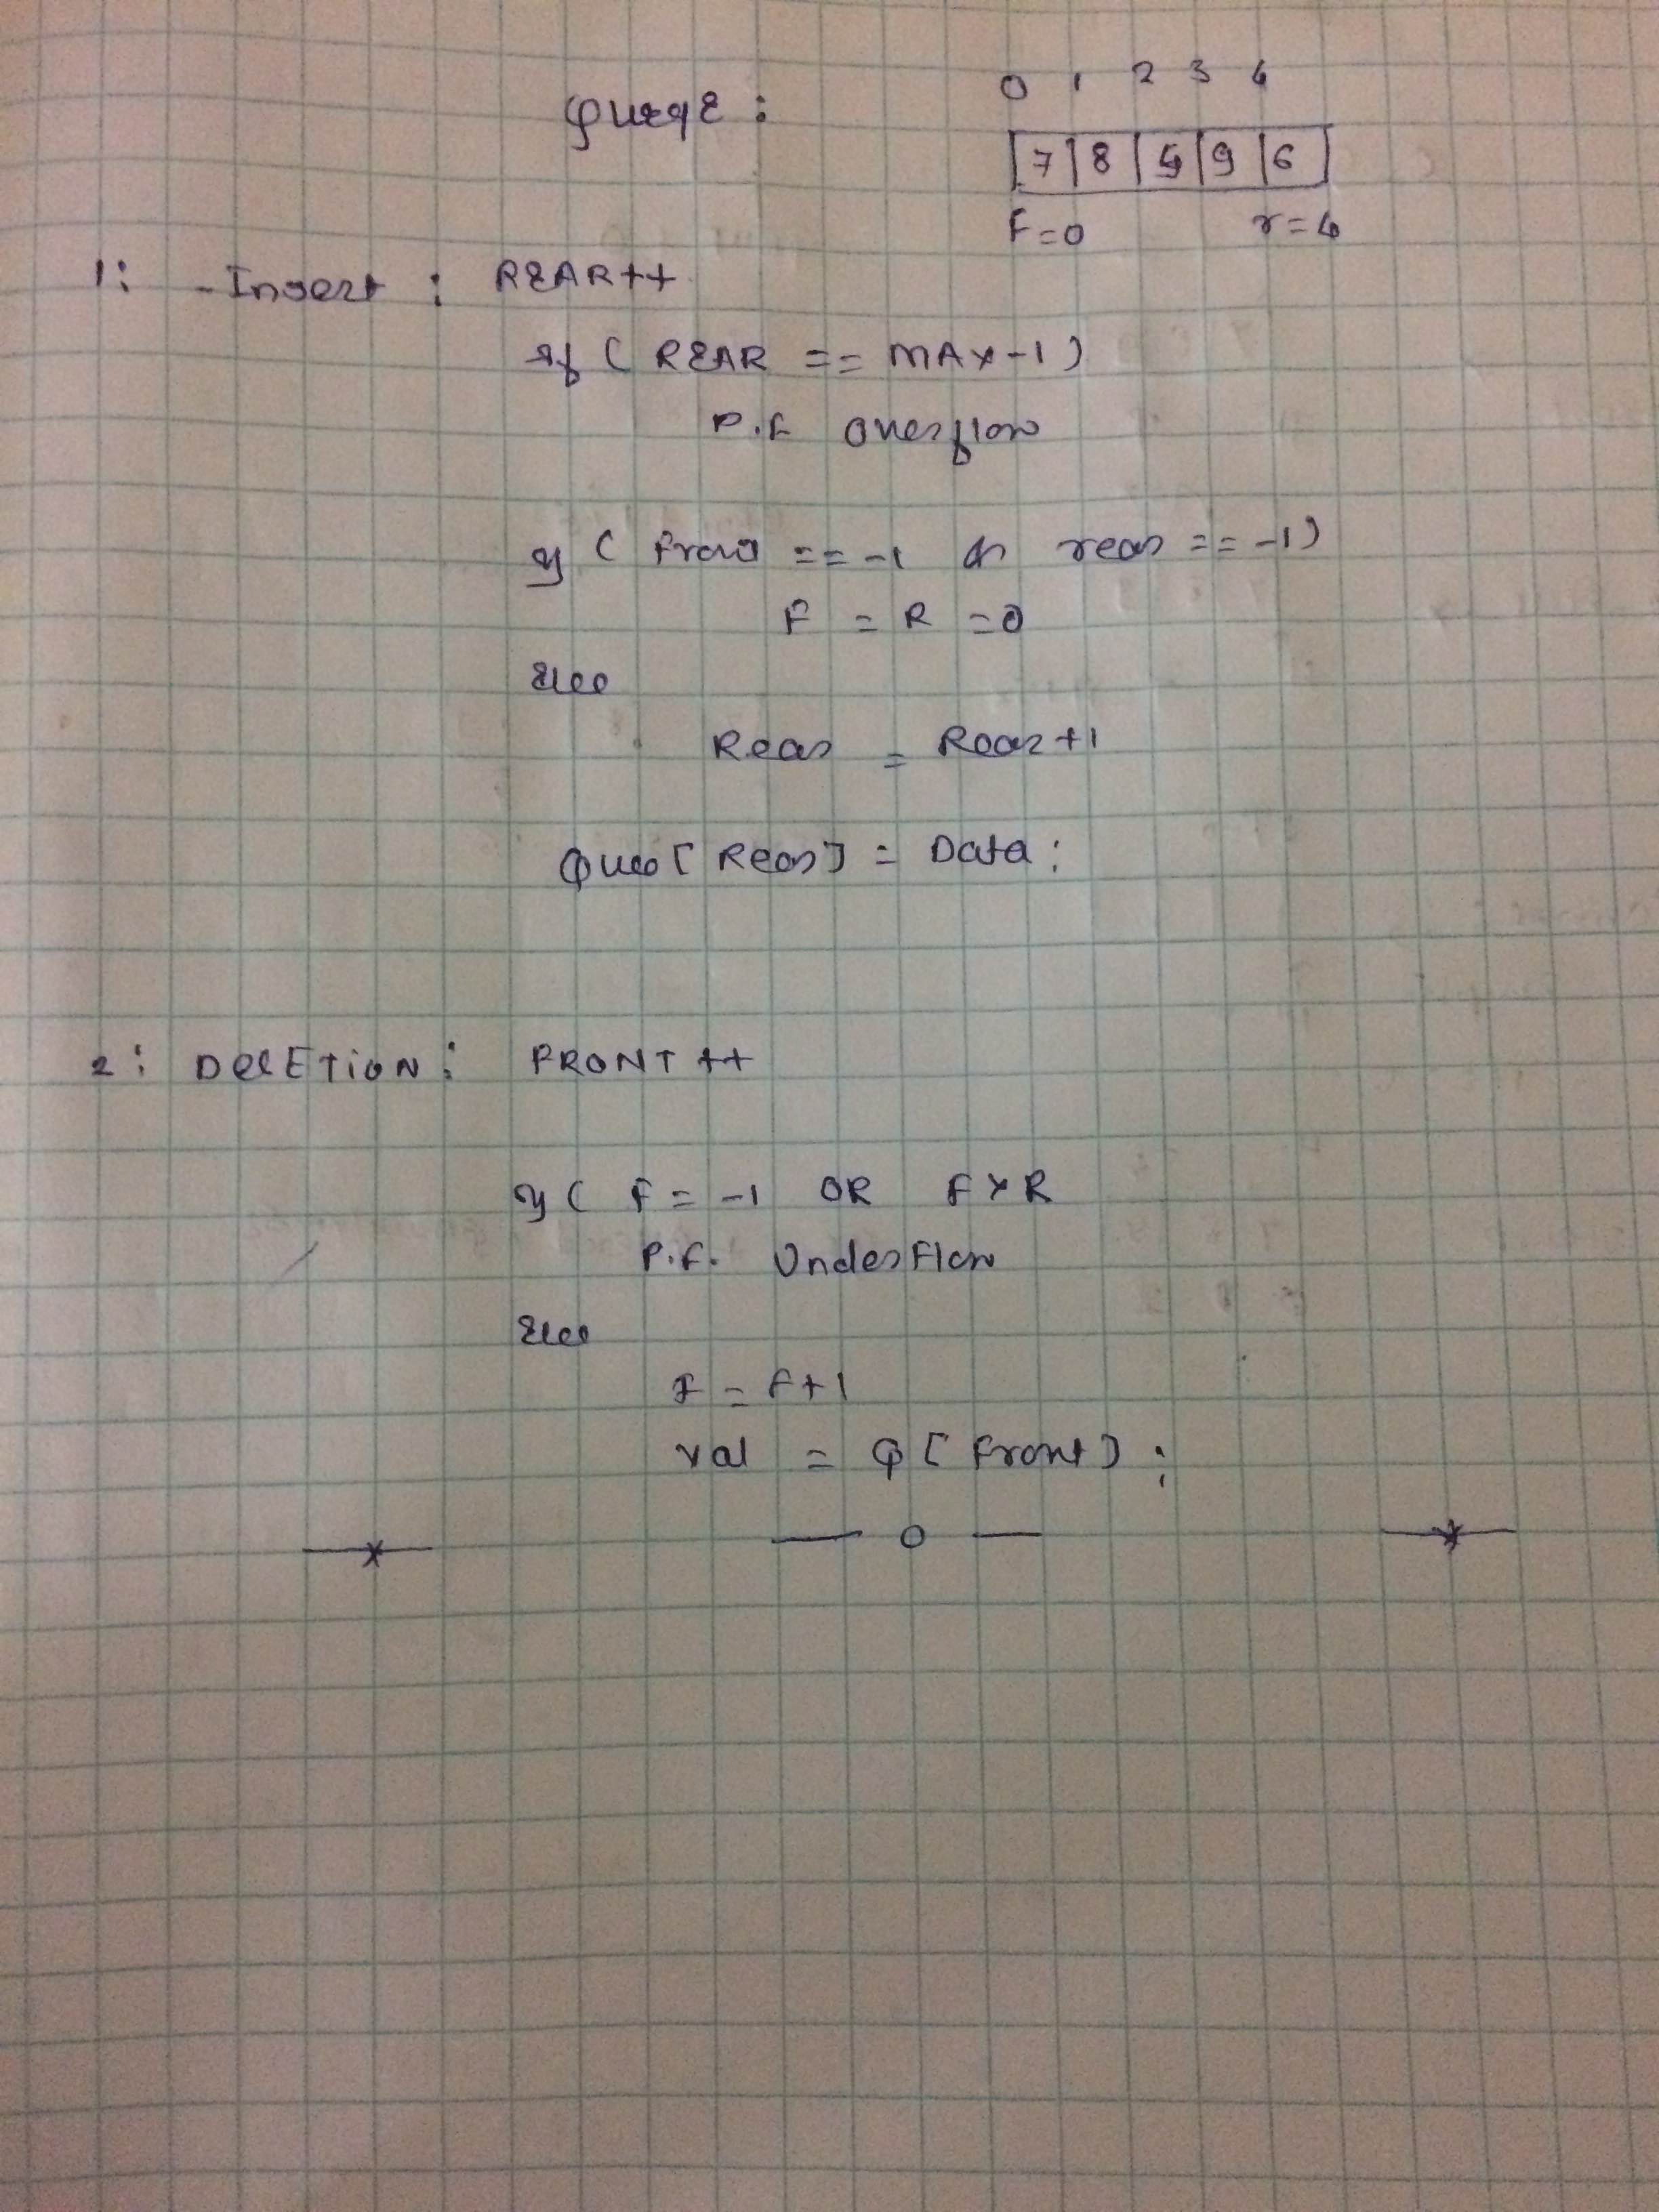 Queue :
0 1 2 3 4
7 8 5 9 6
F=0 r=4
1: - Insert : REAR++
if ( REAR == MAX-1 )
P.F Overflow
if ( Front == -1 rear == -1 )
F = R = 0
Else
Rear = Rear+1
Que [ Rear ] = Data ;
2 : DELETION : FRONT ++
if ( F = -1 OR F > R
P.F. UnderFlow
Else
F = F+1
val = Q [ Front ] ;